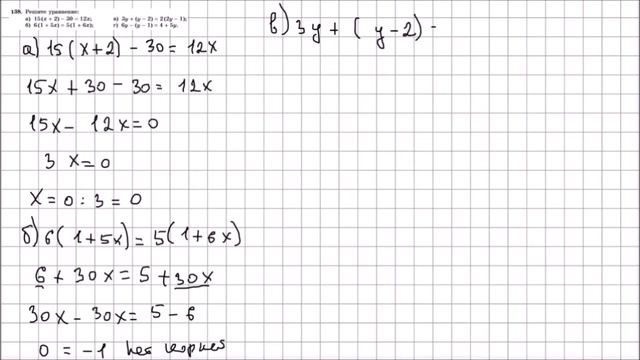 138. Решите уравнение:
а) 15(x + 2) - 30 = 12x;
б) 6(1 + 5x) = 5(1 + 6x);
в) 3y + (y - 2) = 2(2y - 1);
г) 6y - (y - 1) = 4 + 5y.
а) 15(x+2) - 30 = 12x
15x + 30 - 30 = 12x
15x - 12x = 0
3 x = 0
x = 0 : 3 = 0
б) 6(1+5x) = 5(1+6x)
6 + 30x = 5 + 30x
30x - 30x = 5 - 6
0 = -1 нет корней
в) 3y + (y-2) =